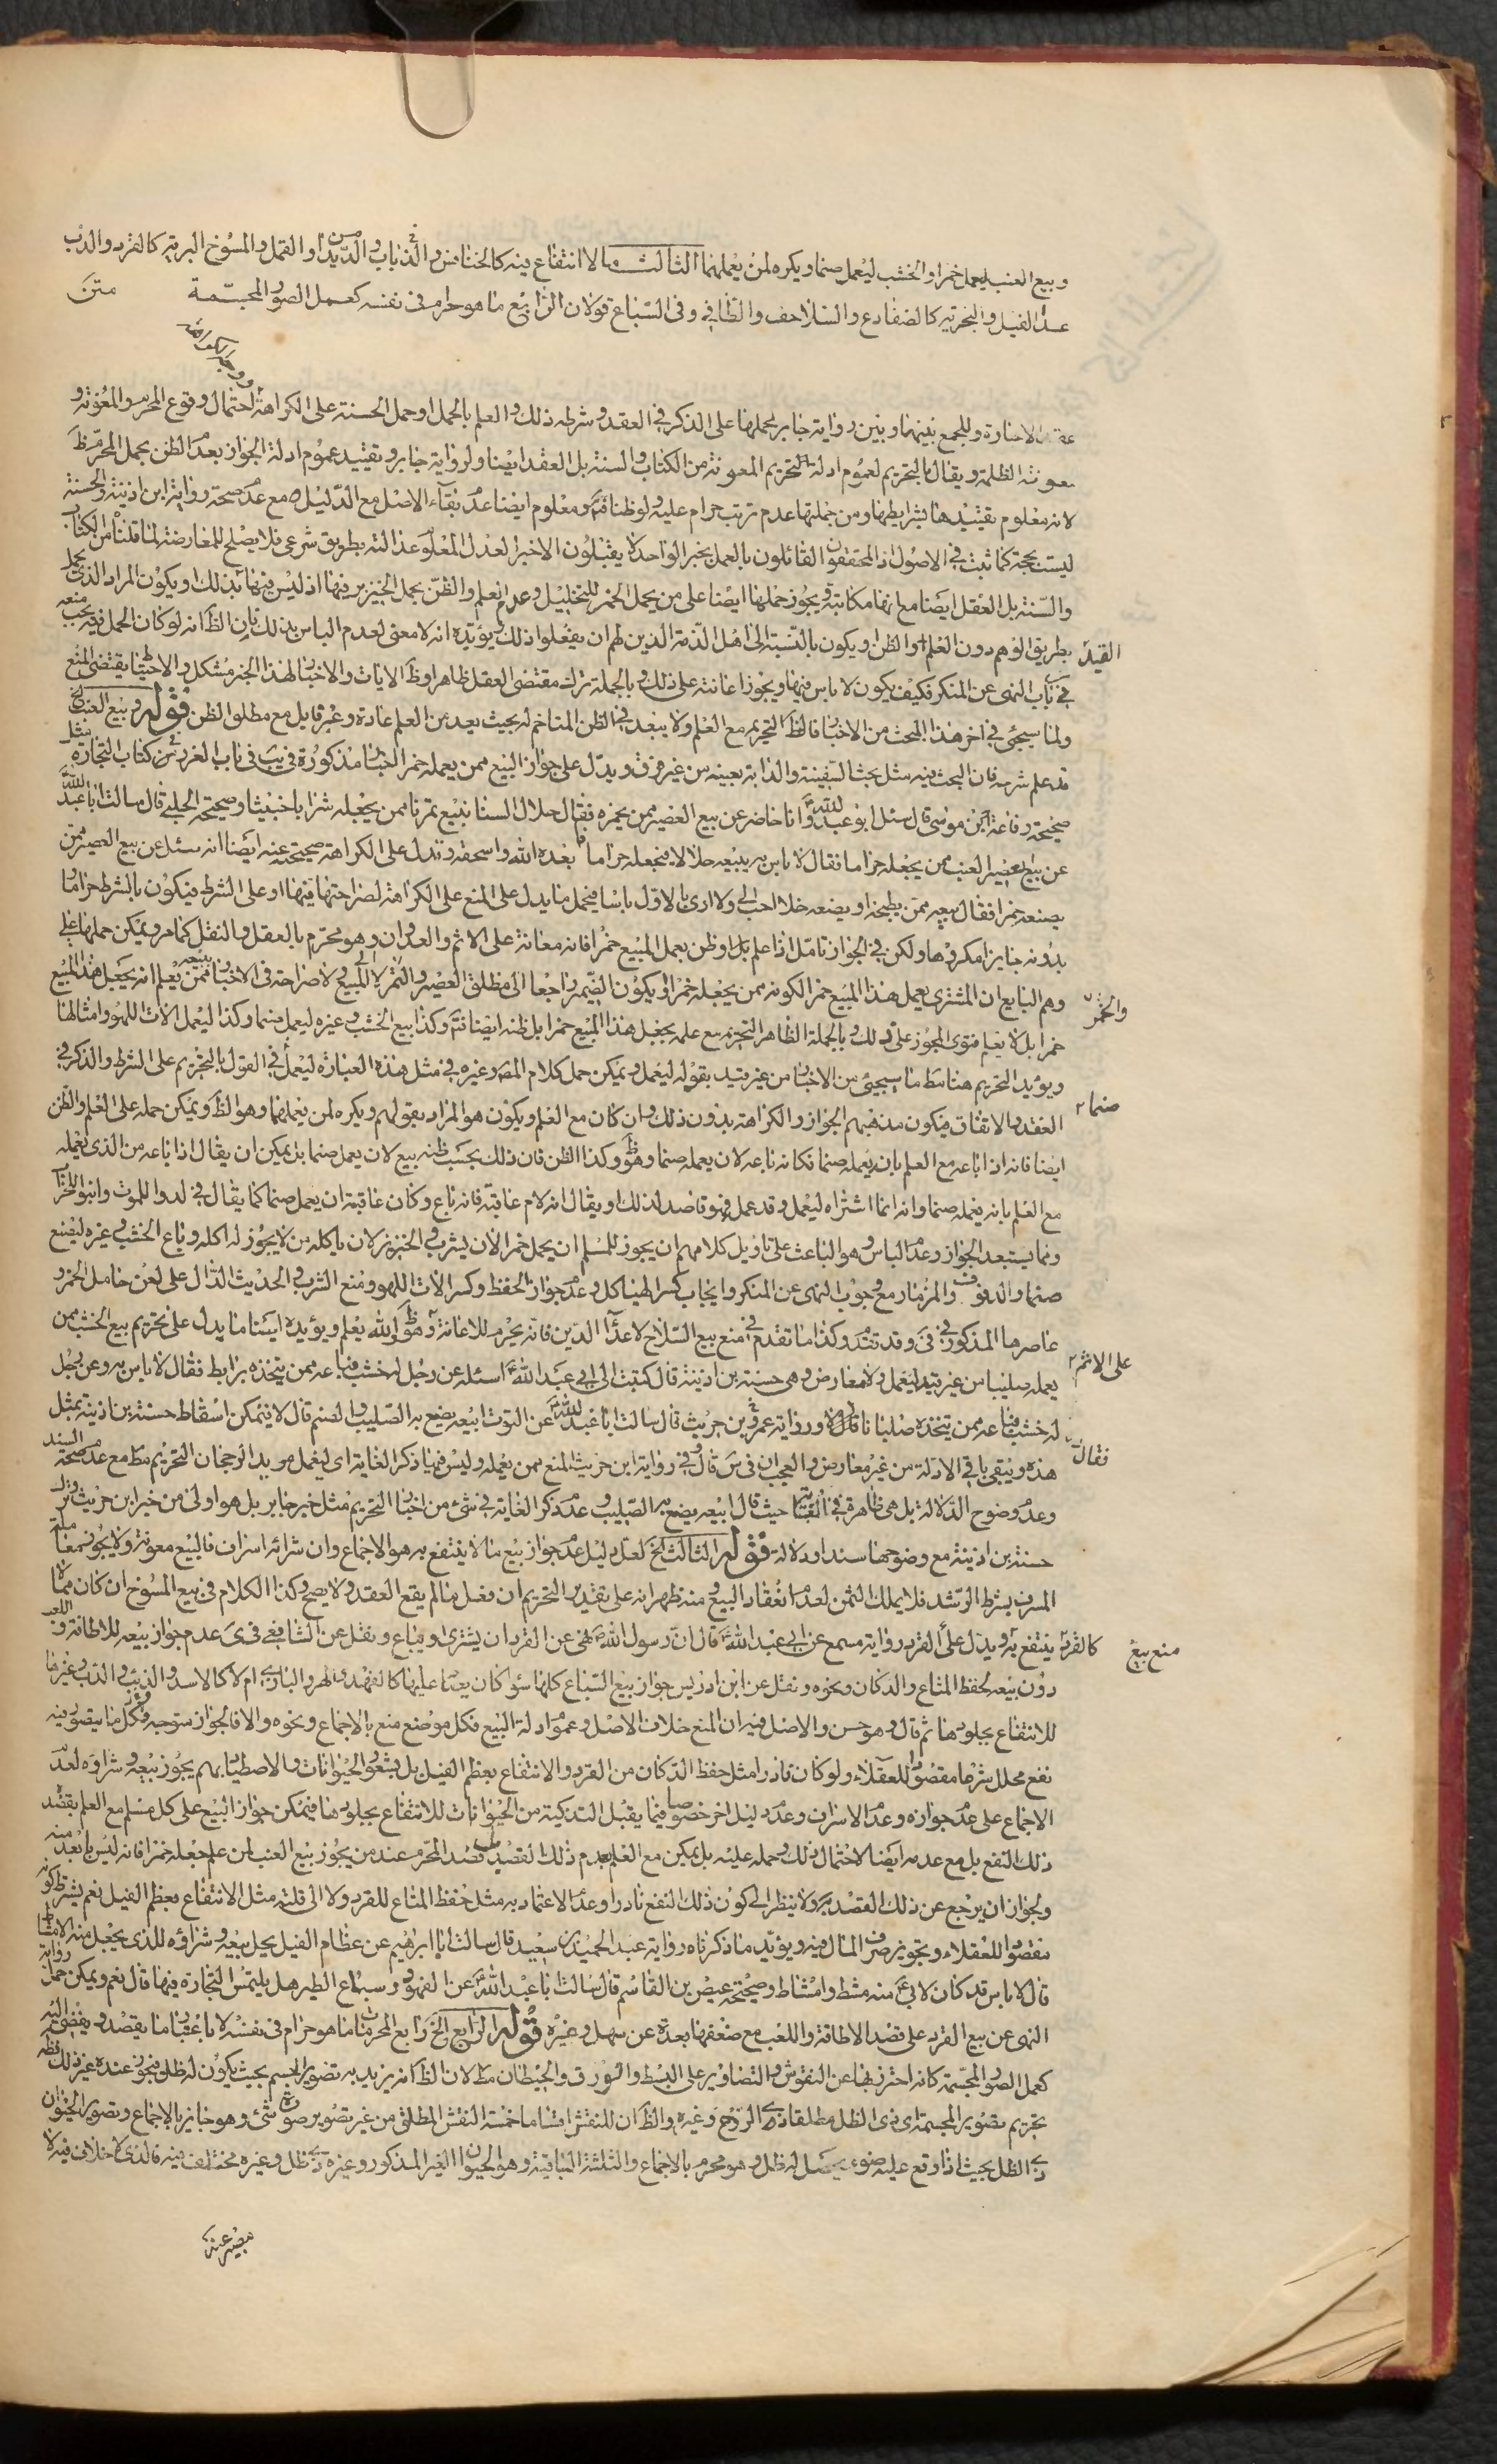 وبيع العنب ليعمل خمرا والخشب ليعمل صنما ويكره لمن يعملهما الثالث ما لا انتفاع فيه كالخنافس والذباب والديدان والقمل والمسوخ البرية كالقرد والدب
عدا الفيل والبحرية كالضفادع والسلاحف والطافي وفي السباع قولان الرابع ما هو حرام في نفسه كعمل الصور المجسمة متن
الاجارة وللجمع بينهما وبين رواية جابر بحملها على الذكر في العقد وشرط ذلك والعلم بالحمل او حمل الحسنة على الكراهة لاحتمال وقوع المحرم والمعونة و
معونة الظلمة ويقال بالتحريم لعموم ادلة التحريم المعونة من الكتاب والسنة بل العقد ايضا ولرواية جابر وتقييد عموم ادلة الجواز بعدم الظن بحمل المحرم
لانه معلوم تقييدها بشرايطها ومن جملتها عدم ترتب حرام عليه ولو ظنا ومعلوم ايضا عدم بقاء الاصل مع الدليل مع عدم صحة رواية ابن اذينة والحسنة
ليست بحجة كما ثبت في الاصول اذ المحققون القائلون بالعمل بخبر الواحد لا يقبلون الا خبر العدل المعلوم عدالته بطريق شرعي فلا يصلح للمعارضة لما قلنا من الكتاب
والسنة بل العقل ايضا مع انها مكاتبة ويجوز حملها ايضا على من يحمل الخمر للتخليل وعدم العلم والظن بحمل الخنزير فيها اذ ليس فيها قيد ذلك او يكون المراد الذي يحمل
القيد بطريق الوهم دون العلم او الظن او يكون بالنسبة الى اهل الذمة الذين لهم ان يفعلوا ذلك ويؤيده انه لا معنى لعدم الباس بذلك فان الظ انه لو كان الحمل فيه يجب منعه
في باب النهى عن المنكر فكيف يكون لا باس فيها ويجوز اعانته على ذلك وبالجملة ترك مقتضى العقل ظاهرا وظ الايات والاخبار لهذا الخبر مشكل والاحتياط يقتضى المنع
ولما سيجئ في اخر هذا المبحث من الاخبار فالظ التحريم مع العلم ولا يبعد في الظن المتاخم له بحيث يعد من العلم عادة وغير قابل مع مطلق الظن قوله وبيع العنب الخ
قد علم شرحه فان البحث فيه مثل بحث السفينة والدابة بعينه من غير فرق ويدل على جواز البيع ممن يعمله خمرا اخبار مذكورة في يب في باب الغرر من كتاب التجارة مثل
صحيحة رفاعة ابن موسى قال سئل ابو عبد الله ع وانا حاضر عن بيع العصير ممن يخمره فقال حلال السنا نبيع تمرنا ممن يجعله شرابا خبيثا وصحيحة الحلبي قال سالت ابا عبد الله
عن بيع عصير العنب ممن يجعله حراما فقال لا باس به يبيعه حلالا فيجعله حراما بعده الله واسحقه وتدل على الكراهة صحيحته عنه ايضا انه سئل عن بيع العصير ممن
يصنعه خمرا فقال بيعه ممن يطبخه او يصنعه خلا احب الى ولا ارى بالاول باسا فيحمل ما يدل على المنع على الكراهة لصراحتها فيها او على الشرط فيكون بالشرط حراما و
بدونه جايزا مكروها ولكن في الجواز تامل اذا علم بل او ظن بعمل المبيع خمرا فانه معانة على الاثم والعدوان وهو محرم بالعقل والنقل كما مر ويمكن حملها على
والخمر وهم البايع ان المشترى يعمل هذا المبيع خمرا لكونه ممن يجعله خمرا او يكون الضمير راجعا الى مطلق العصير والتمر لا المبيع ولا صراحة في الاخبار ببيعه ممن يعلم انه يجعل هذا المبيع
خمرا بل لا يعلم فتوى المجوز على ذلك وبالجملة الظاهر التحريم مع علمه بجعل هذا المبيع خمرا بل ظنه ايضا فتم وكذا بيع الخشب وغيره ليعمل صنما وكذا ليعمل الات اللهو وامثالها
ويؤيد التحريم هنا مط ما سيجئ من الاخبار من غير قيد بقوله ليعمل ويمكن حمل كلام المص وغيره في مثل هذه العبارة ليعمل في القول بالتحريم على الشرط والذكر في
صنما ٢ العقد والاتفاق فيكون مذهبهم الجواز والكراهة بدون ذلك وان كان مع العلم ويكون هو المراد بقولهم ويكره لمن يعملهما وهو الظ ويمكن حمله على العلم والظن
ايضا فانه اذا باعه مع العلم بانه يعمله صنما فكانه باعه لان يعمله صنما وهو ظ وكذا الظن فان ذلك بحسب ظنه بيع لان يعمل صنما بل يمكن ان يقال اذا باعه من الذي يعمله
مع العلم بانه يعمله صنما وانه انما اشتراه ليعمل وقد عمل فهو قاصد لذلك او يقال انه لام عاقبة فانه باع وكان عاقبته ان يعمل صنما كما يقال في لدوا للموت وابنوا للخراب
ومما يستبعد الجواز وعدم الباس وهو الباعث على تاويل كلامهم ان يجوز للمسلم ان يحمل خمرا لان يشرب والخنزير لان ياكله من لا يجوز له اكله ويباع الخشب وغيره ليصنع
صنما والدفوف والمزمار مع وجوب النهى عن المنكر وايجاب كسر الهياكل وعدم جواز الحفظ وكسر الات اللهو ومنع الشرب والحديث الدال على لعن حامل الخمر و
عاصرها المذكور في في وقد تقدم وكذا ما تقدم في منع بيع السلاح لاعداء الدين فانه يحرم للاعانة وهو ظ والله يعلم ويؤيده ايضا ما يدل على تحريم بيع الخشب ممن
على الاثم ٢ يعمله صليبا من غير قيد ليعمل ولا معارض وهي حسنة بن اذينة قال كتبت الى ابي عبد الله ع اسئله عن رجل له خشب فباعه ممن يتخذه برابط فقال لا باس به وعن رجل
فقال له خشب فباعه ممن يتخذه صلبانا قال لا ورواية عمرو بن حريث قال سالت ابا عبد الله ع عن التوت ابيعه يصنع به الصليب والصنم قال لا فيمكن اسقاط حسنة بن اذينة بمثل
هذه ويبقى باقي الادلة من غير معارض والعجب ان في س قال وفي رواية ابن حريث المنع ممن يعمله وليس فيها ذكر الغاية اى ليعمل مويد الرجحان التحريم مط مع عدم صحة السند
وعدم وضوح الدلالة بل هي ظاهرة في الغاية حيث قال ابيعه يصنع به الصليب وعدم ذكر الغاية في شئ من اخبار التحريم مثل خبر جابر بل هو اولى من خبر ابن حريث وترك
حسنة بن اذينة مع وضوحها سندا ودلالة قوله الثالث الخ لعل دليل عدم جواز بيع ما لا ينتفع به هو الاجماع وان شرائه اسراف فالبيع معونة ولا يجوز معاملة
المسرف بشرط الرشد فلا يملك الثمن لعدم انعقاد البيع ومنه ظهر انه على تقدير التحريم ان فعل ما لم يقع العقد ولا يصح وكذا الكلام في بيع المسوخ ان كان مما لا
منع بيع كالقرد ينتفع به ويدل على القرد رواية مسمع عن ابي عبد الله ع قال ان رسول الله ص نهى عن القرد ان يشترى او يباع ونقل عن الشافعي في ى عدم جواز بيعه للاطافة واللعب
دون بيعه لحفظ المتاع والدكان ونحوه ونقل عن ابن ادريس جواز بيع السباع كلها سواء كان يصاد عليها كالفهد والهر والبازي ام لا كالاسد والذئب والدب وغيرها
للانتفاع بجلودها ثم قال وهو حسن والاصل فيه ان المنع خلاف الاصل وعموم ادلة البيع فكل موضع منع بالاجماع ونحوه والا فالجواز متوجه وكل ما يتصور فيه
نفع محلل شرعا مقصود للعقلاء ولو كان نادرا مثل حفظ الدكان من القرد والانتفاع بعظم الفيل بل بشعور الحيوانات والاصطياد بهم يجوز بيعه وشراؤه لعدم
الاجماع على عدم جوازه وعدم الاسراف وعدم دليل اخر خصوصا فيما يقبل التذكية من الحيوانات للانتفاع بجلودها فيمكن جواز البيع على كل مسلم مع العلم بقصد
ذلك النفع بل مع عدمه ايضا لاحتمال ذلك وحمله عليه بل يمكن مع العلم بعدم ذلك القصد بل قصد المحرم عند من يجوز بيع العنب لمن علم جعله خمرا فانه ليس بابعد منه
ولجواز ان يرجع عن ذلك القصد ولا ينظر الى كون ذلك النفع نادرا وعدم الاعتماد به مثل حفظ المتاع للقرد ولا الى قلته مثل الانتفاع بعظم الفيل نعم يشترط كونه
مقصودا للعقلاء وتجويز صرف المال فيه ويؤيد ما ذكرناه رواية عبد الحميد بن سعيد قال سالت ابا ابرهيم عن عظام الفيل يحل بيعه وشراؤه للذى يجعل منه الامشاط
قال لا باس قد كان لابي منه مشط وامشاط وصحيحة عيص بن القاسم قال سالت ابا عبد الله ع عن الفهود وسباع الطير هل يلتمس التجارة فيها قال نعم ويمكن حمل رواية
النهى عن بيع القرد على قصد الاطافة واللعب مع ضعفها بعدة عن سهل وغيره قوله الرابع الخ رابع المحرمات ما هو حرام في نفسه لا باعتبار ما يقصد ويفضى اليه
كعمل الصور المجسمة كانه احترز بها عن النقوش والتصاوير على البسط والورق والحيطان مط لان الظ انه يريد به تصوير الجسم بحيث يكون له ظل فيجوز عنده غير ذلك فظهر
تحريم تصوير المجسمة اى ذى الظل مطلقا ذى الروح وغيره والظ ان للنقش اقساما خمسة النقش المطلق من غير تصوير صورة شئ وهو جايز بالاجماع وتصوير الحيوان
ذى الظل بحيث اذا وقع عليه ضوء يحصل له ظل وهو محرم بالاجماع والثلثة الباقية وهو الحيوان الغير المذكور وغيره ذى ظل وغيره مختلف فيه فالذى لا خلاف فيه لا